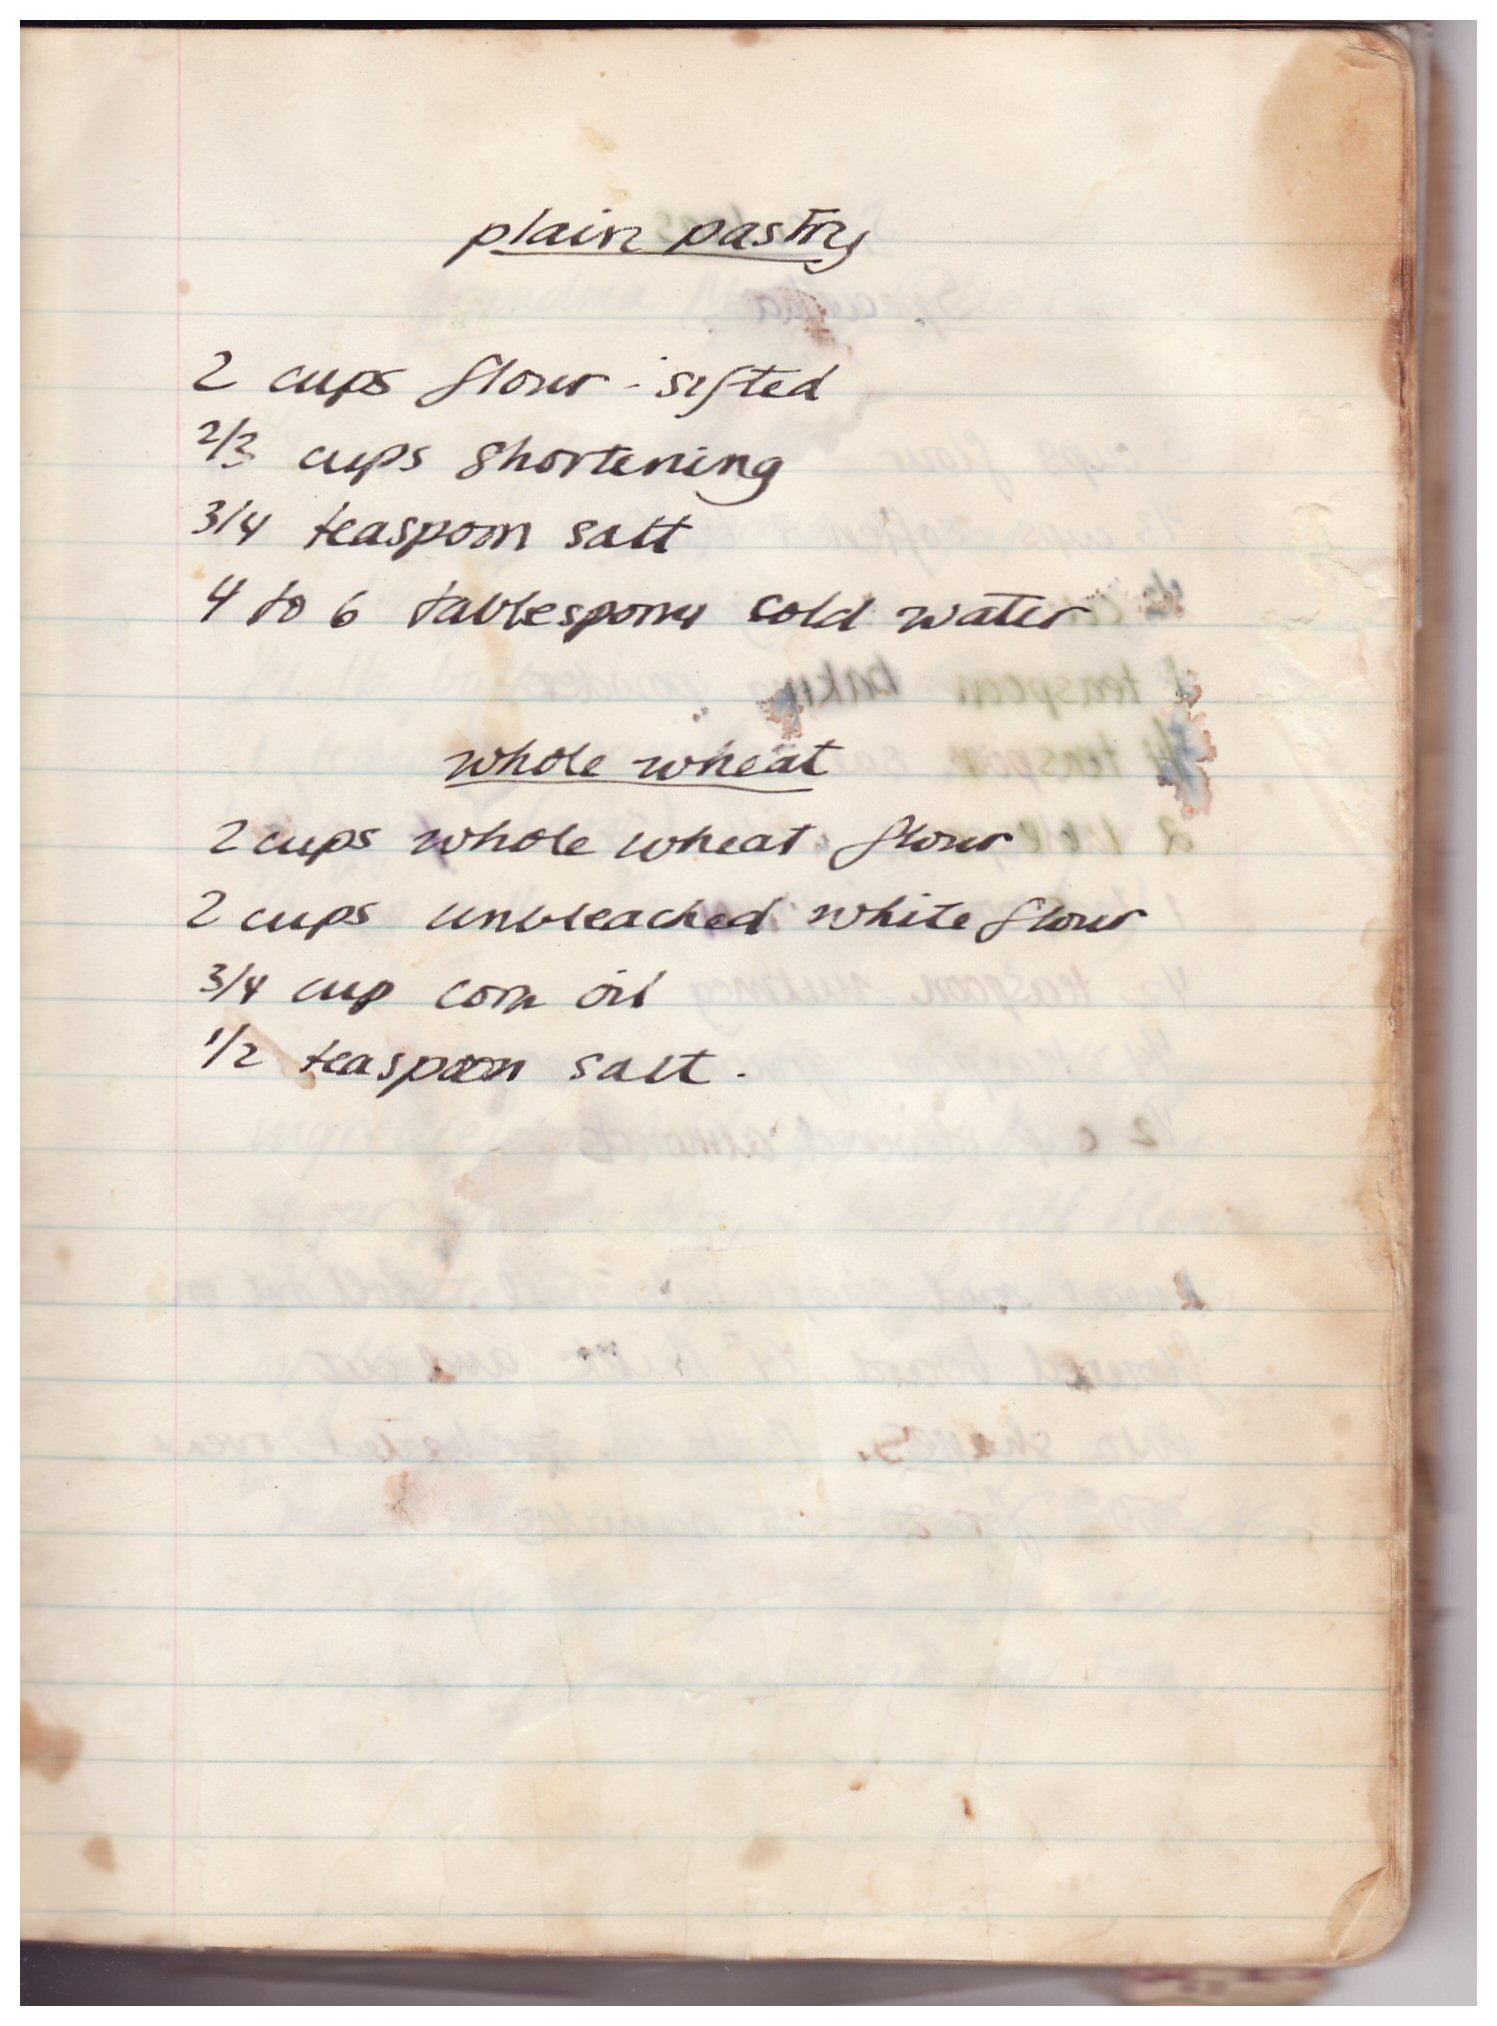 plain pastry
2 cups flour - sifted
2/3 cups shortening
3/4 teaspoon salt
4 to 6 tablespoons cold water
whole wheat
2 cups whole wheat flour
2 cups unbleached white flour
3/4 cup corn oil
1/2 teaspoon salt.